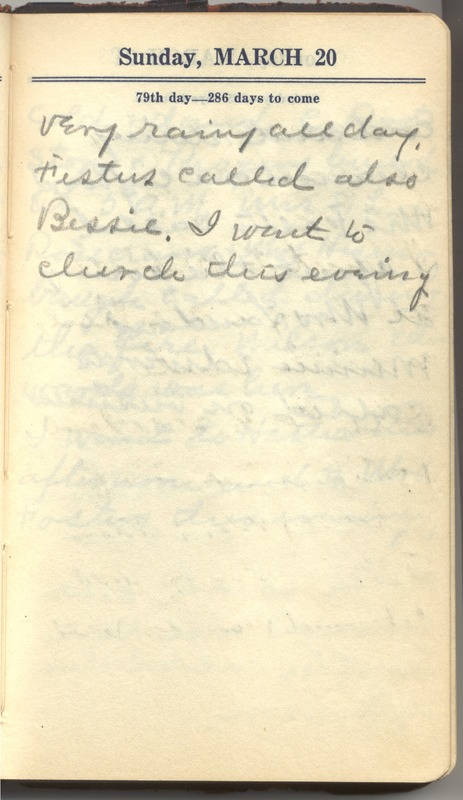 Sunday, MARCH 20
79th day—286 days to come
very rainy all day,
Festus called also
Bessie. I went to
church this evening